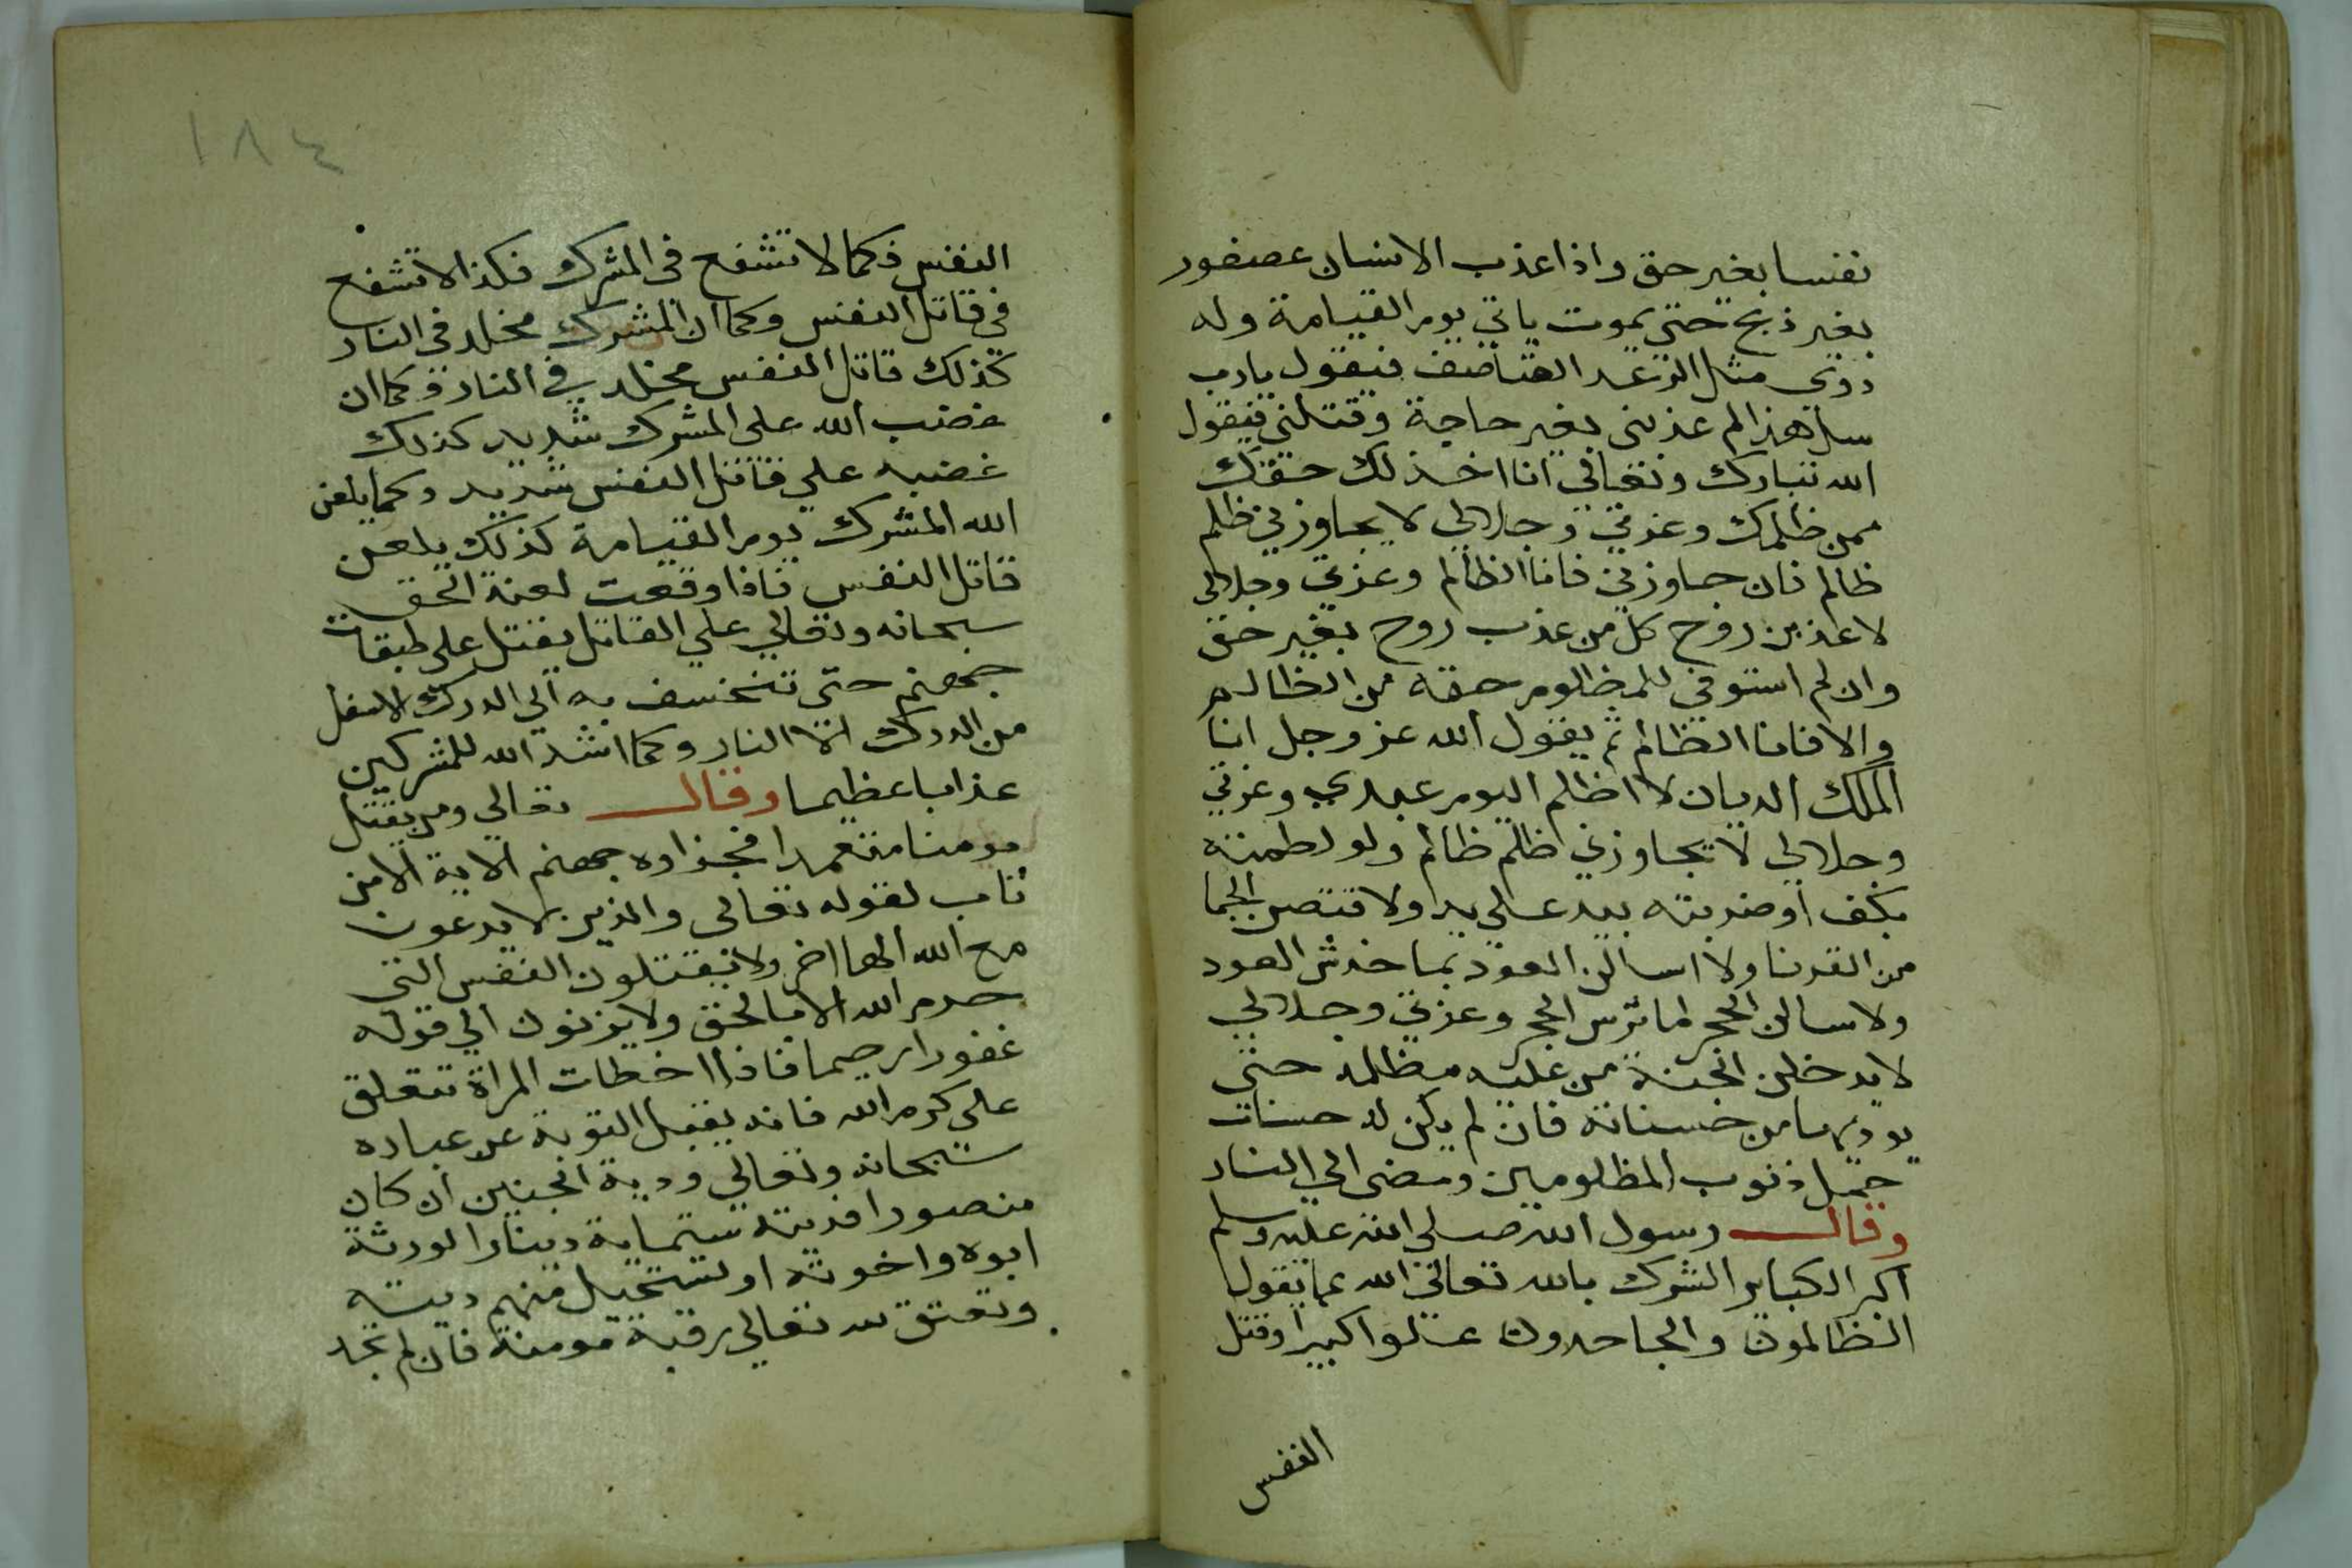 نفسا بغير حق واذا عذب الانسان عصفور
بغير ذبح حتى يموت ياتي يوم القيامة وله
دوي مثل الرعد القاصف فيقول يارب
سل هذا لم عذبني بغير حاجة وقتلني فيقول
الله تبارك وتعالى انا اخذ لك حقك
ممن ظلمك وعزتي وجلالي لا يجاوزني ظلم
ظالم فان جاوزني فانا الظالم وعزتي وجلالي
لاعذبن روح كل من عذب روح بغير حق
وان لم استوفي للمظلوم حقه من الظالم
والا فانا الظالم ثم يقول الله عز وجل انا
الملك الديان لا اظلم اليوم عبدي وعزتي
وجلالي لا يجاوزني اظلم ظالم ولو لطمته
بكف او ضربته بيد على يد ولا قتصن الجما
من القرنا ولا اسالن العود بما خدش العود
ولاسالن الحجر لما ترس الحجر وعزتي وجلالي
لا يدخلن الجنة من عليه مظلمه حتى
يوديها من حسناته فان لم يكن له حسنات
حمل ذنوب المظلومين ومضى الي النار
وقال رسول الله صلى الله عليه وسلم
اكبر الكباير الشرك بالله تعالى الله عما يقول
الظالمون والجاحدون علوا كبيرا وقتل
النفس
١٨٤
النفس فكما لا تشفع في المشرك فكذا لا تشفع
في قاتل النفس وكما ان المشرك مخلد في النار
كذلك قاتل النفس مخلد في النار وكما ان
غضب الله على المشرك شديد كذلك
غضبه علي قاتل النفس شديد وكما يلعن
الله المشرك يوم القيامة كذلك يلعن
قاتل النفس فاذا وقعت لعنة الحق
سبحانه وتعالي علي القاتل يفتل على طبقات
جهنم حتى تنخسف به الي الدرك الاسفل
من الدرك النار وكما اشد الله للمشركين
عذابا عظيما وقال تعالي ومن يقتل
مومنا متعمدا فجزاوه جهنم الاية الامن
تاب لقوله تعالى والذين لا يدعون
مع الله الها اخر ولا يقتلون النفس التي
حرم الله الا بالحق ولا يزنون الي قوله
غفورا رحيما فاذا اخطات المراة تتعلق
على كرم الله فانه يقبل التوبة عن عباده
سبحانه وتعالي ودية الجنين ان كان
منصورا فديته ستماية دينارا لورثة
ابوه واخوته او تستحيل منهم ديته
وتعتق لله تعالي رقبة مومنة فان لم تجد